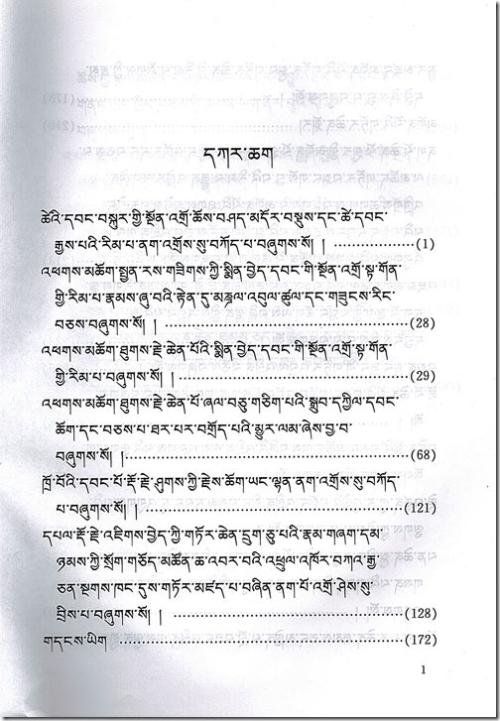 དཀར་ཆག
ཚེའི་དབང་བསྐུར་གྱི་སྔོན་འགྲོ་ཆོས་བཤད་མདོར་བསྡུས་དང་ཚེ་དབང་
རྒྱས་པའི་རིམ་པ་ནག་འགྲོས་སུ་བཀོད་པ་བཞུགས་སོ། །…………(1)
འཕགས་མཆོག་སྤྱན་རས་གཟིགས་ཀྱི་སྨིན་བྱེད་དབང་གི་སྔོན་འགྲོ་སྟ་གོན་
གྱི་རིམ་པ་རྣམས་ཞུ་བའི་རྟེན་དུ་མཎྜལ་འབུལ་ཚུལ་དང་གཟུངས་རིང་
བཅས་བཞུགས་སོ། །…………(28)
འཕགས་མཆོག་ཐུགས་རྗེ་ཆེན་པོའི་སྨིན་བྱེད་དབང་གི་སྔོན་འགྲོ་སྟ་གོན་
གྱི་རིམ་པ་བཞུགས་སོ། །…………(29)
འཕགས་མཆོག་ཐུགས་རྗེ་ཆེན་པོ་ཞལ་བཅུ་གཅིག་པའི་སྒྲུབ་དཀྱིལ་དབང་
ཆོག་དང་བཅས་པ་ཐར་པར་བགྲོད་པའི་མྱུར་ལམ་ཞེས་བྱ་བ་
བཞུགས་སོ། །…………(68)
ཁྲོ་བོའི་དབང་པོ་རྡོ་རྗེ་ཤུགས་ཀྱི་རྗེས་ཆོག་ཡང་ལྷན་ནག་འགྲོས་སུ་བཀོད་
པ་བཞུགས་སོ། །…………(121)
དཔལ་རྡོ་རྗེ་འཇིགས་བྱེད་ཀྱི་གཏོར་ཆེན་དྲུག་ཅུ་པའི་རྣམ་གཞག་དམ་
ཉམས་ཀྱི་སྲོག་གཅོད་མཚོན་ཆ་འབར་བའི་འཕྲུལ་འཁོར་བཀའ་རྒྱ་
ཅན་སྔགས་ཁང་དུས་གཏོར་མཛད་པ་བཞིན་ནག་པོ་འགྲོ་ཤེས་སུ་
བྲིས་པ་བཞུགས་སོ། །…………(128)
གདངས་ཡིག…………(172)
1